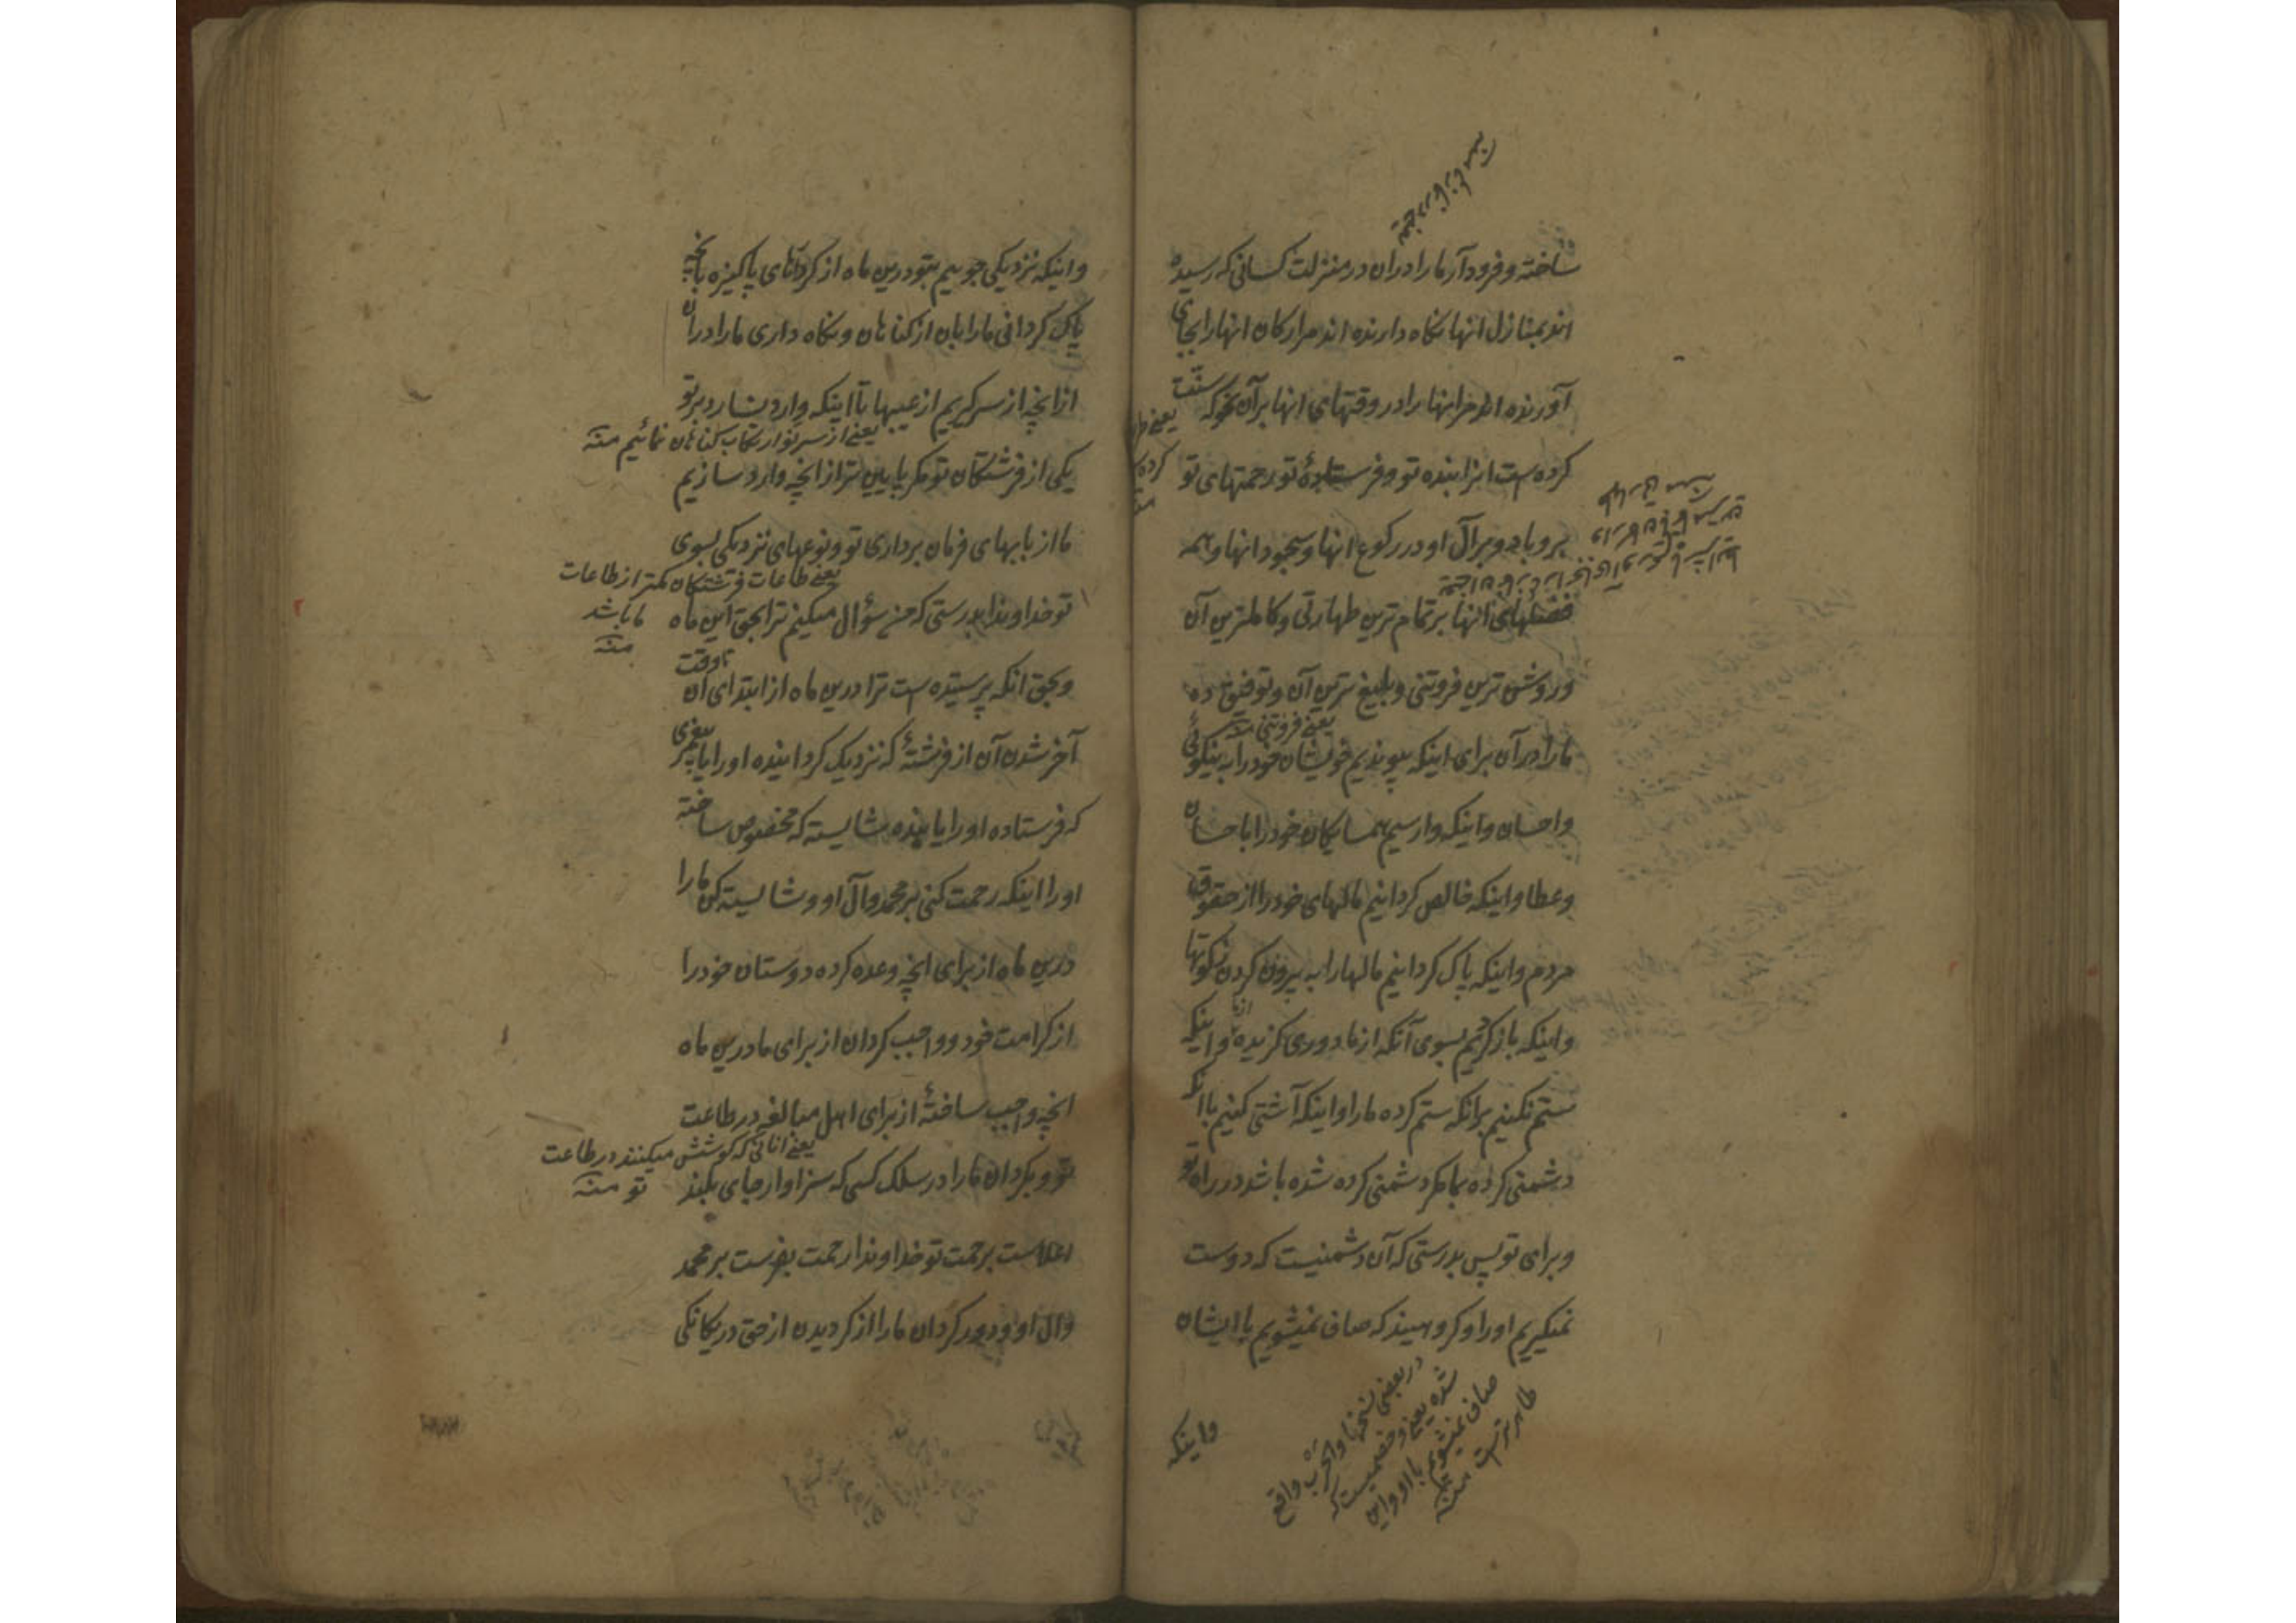 ساخته و فرود آر ما را در ان در منزلت کسانی که رسیده
اند بمنازل انها نکاه دارنده اند مر ارکان انها را بجای
آورنده اند مر انها را در وقتهای انها بر آن نحو که سنّت
کرده است انرا بنده تو و فرستادهٔ تو رحمتهای تو
بر و باد و بر آل او در رکوع انها و سجود انها و همه
فضلهای انها بر تمام ترین طهارتی و کاملترین آن
و روشن ترین فروتنی و بلیغ ترین آن و توفیق ده
یعنے فروتنی منه
ما را در آن برای اینکه بپوندیم خویشان خود را به نیکوئی
و احسان و اینکه وارسیم همسایکان خود را باحسان
و عطا و اینکه خالص کردانیم مالهای خود را از حقوق
مردم و اینکه پاک کردانیم مالها را به بیرون کردن زکوتها
و اینکه باز کردیم بسوی آنکه از ما دوری کزیده و از اینکه
ستم نکنیم برانکه ستم کرده ما را و اینکه آشتی کنیم با انکه
دشمنی کرده بما مکر دشمنی کرده شده باشد در راه تو
و برای تو پس بدرستی که آن دشمنیست که دوست
نمیکیریم او را و کروهیند که صاف نمیشویم با ایشان
در بعضی نسخها و الحرب واقع
شده یعنے و خصمیست که
صاف نمیشویم با او و این
ظاهر ترست منه
و اینکه
و اینکه نزدیکی جوییم بتو درین ماه از کردارهای پاکیزه بانچه
پاک کردانی ما را بان از کناهان و نکاه داری ما را در ان
از انچه از سر کیریم از عیبها تا اینکه وارد نسازد بر تو
یعنے از سر نو ارتکاب کناهان نمائیم منه
یکی از فرشتکان تو مکر پایین تر از انچه وارد سازیم
ما از بابهای فرمان برداری تو و نوعهای نزدیکی بسوی
یعنے طاعات فرشتکان کمتر از طاعات
ما باشد
منه
تو خداوندا بدرستی که من سؤال میکنم ترا بحق این ماه
و بحق انکه پرستیده است ترا درین ماه از ابتدای آن تا وقت
آخر شدن آن از فرشتهٔ که نزدیک کردانیده او را یا پیغمبری
که فرستاده او را یا بنده شایسته که مخصوص ساخته
او را اینکه رحمت کنی بر محمد و آل او و شایسته کن ما را
درین ماه از برای انچه وعده کرده دوستان خود را
از کرامت خود و واجب کردان از برای ما درین ماه
انچه واجب ساختهٔ از برای اهل مبالغه در طاعت
یعنے انانی که کوشش میکنند در طاعت
تو منه
تو و بکردان ما را در سلک کسی که سزاوار جای بلند
اعلاست برحمت تو خداوندا رحمت بفرست بر محمد
و ال او و دور کردان ما را از کردیدن از حق در یکانکی